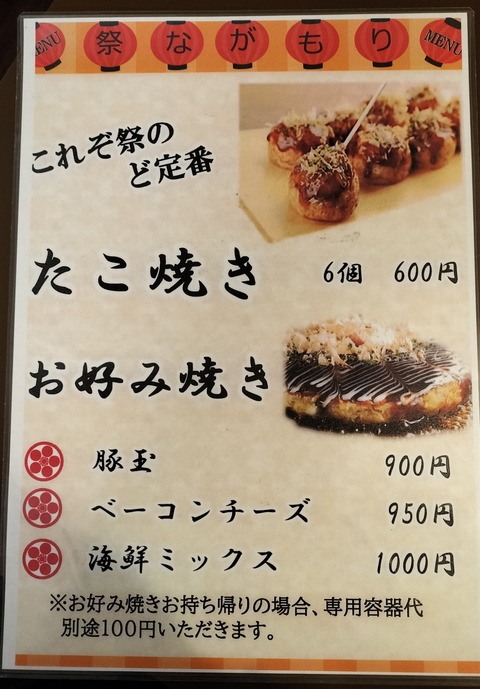 MENU 祭ながもり MENU
これぞ祭の
ど定番
たこ焼き 6個 600円
お好み焼き
豚玉 900円
ベーコンチーズ 950円
海鮮ミックス 1000円
※お好み焼きお持ち帰りの場合、専用容器代
別途100円いただきます。